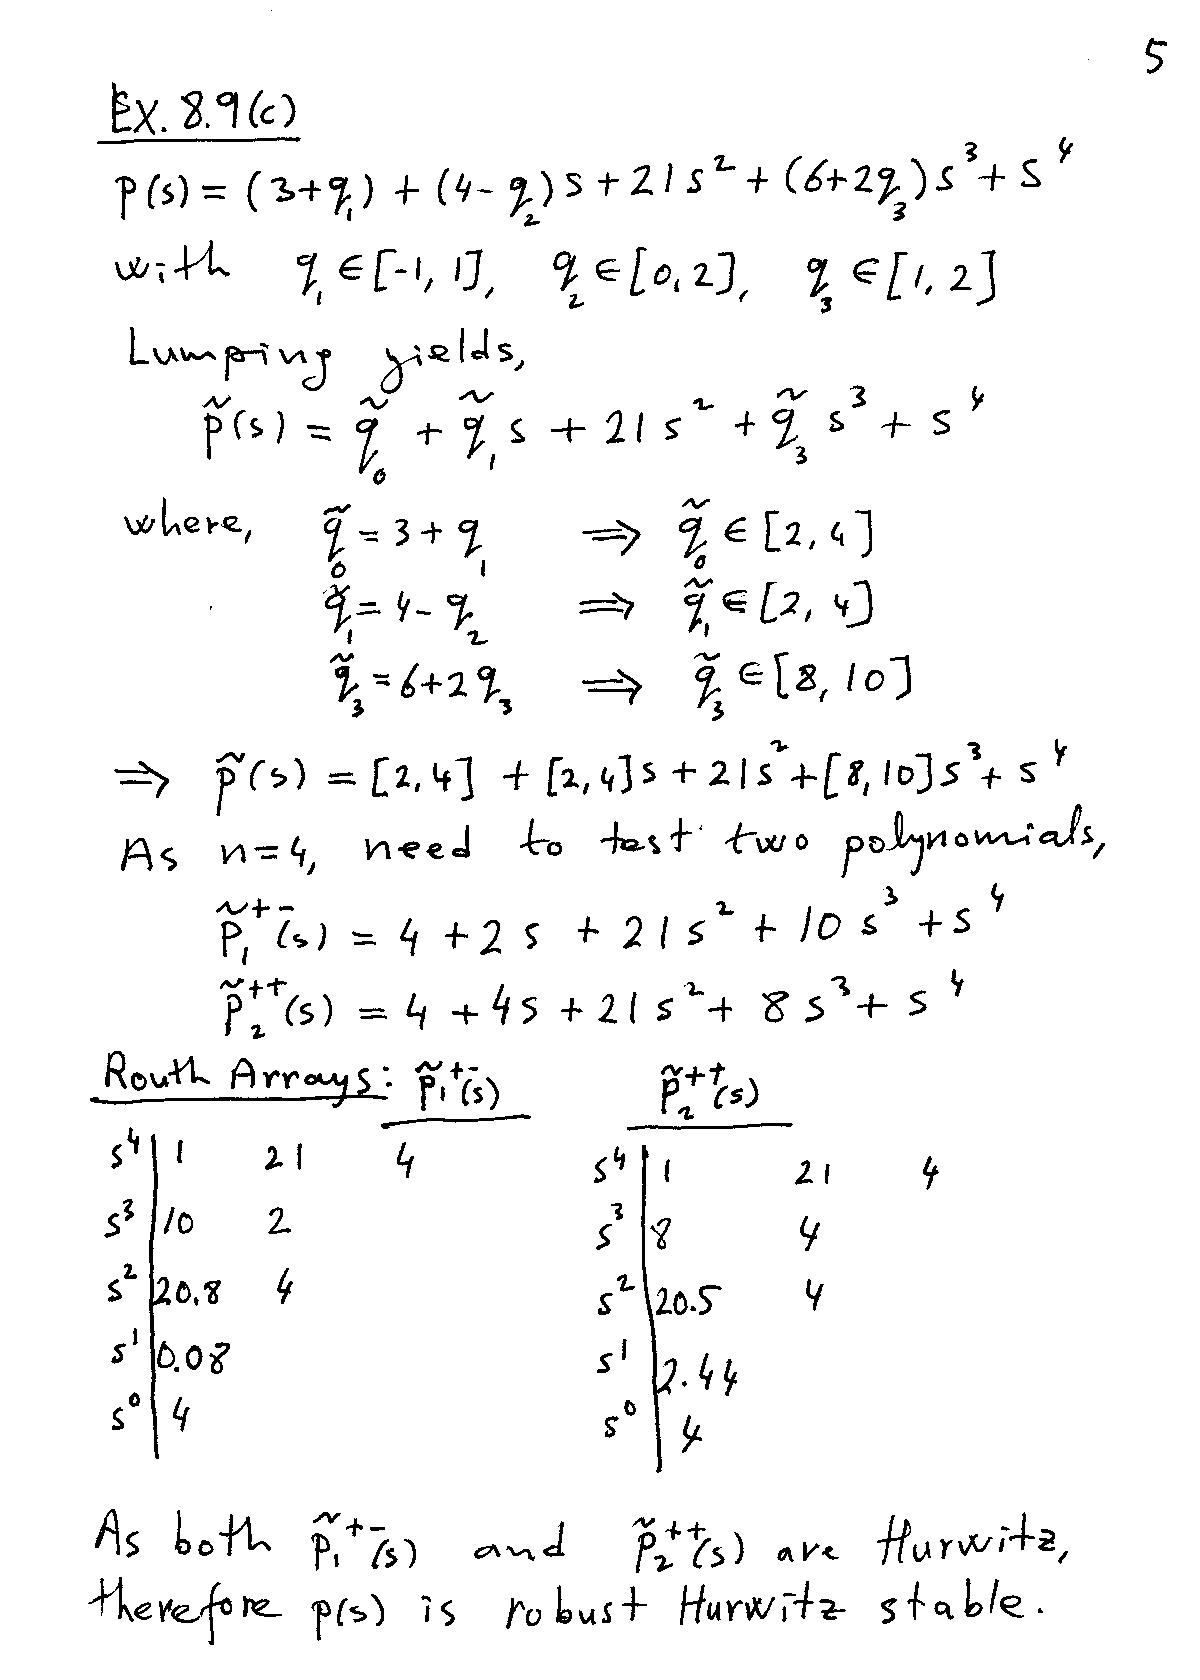 5
Ex. 8.9(c)
p(s) = (3+q₁) + (4-q₂)s + 21s² + (6+2q₃)s³ + s⁴
with q₁ ∈ [-1, 1], q₂ ∈ [0, 2], q₃ ∈ [1, 2]
Lumping yields,
p̃(s) = q̃₀ + q̃₁s + 21s² + q̃₃s³ + s⁴
where, q̃₀ = 3 + q₁ ⇒ q̃₀ ∈ [2, 4]
q̃₁ = 4 - q₂ ⇒ q̃₁ ∈ [2, 4]
q̃₃ = 6+2q₃ ⇒ q̃₃ ∈ [8, 10]
⇒ p̃(s) = [2, 4] + [2, 4]s + 21s² + [8, 10]s³ + s⁴
As n=4, need to test two polynomials,
p̃₁⁺⁻(s) = 4 + 2s + 21s² + 10s³ + s⁴
p̃₂⁺⁺(s) = 4 + 4s + 21s² + 8s³ + s⁴
Routh Arrays: p̃₁⁺⁻(s) p̃₂⁺⁺(s)
s⁴ | 1 21 4 s⁴ | 1 21 4
s³ | 10 2 s³ | 8 4
s² | 20.8 4 s² | 20.5 4
s¹ | 0.08 s¹ | 2.44
s⁰ | 4 s⁰ | 4
As both p̃₁⁺⁻(s) and p̃₂⁺⁺(s) are Hurwitz,
therefore p(s) is robust Hurwitz stable.